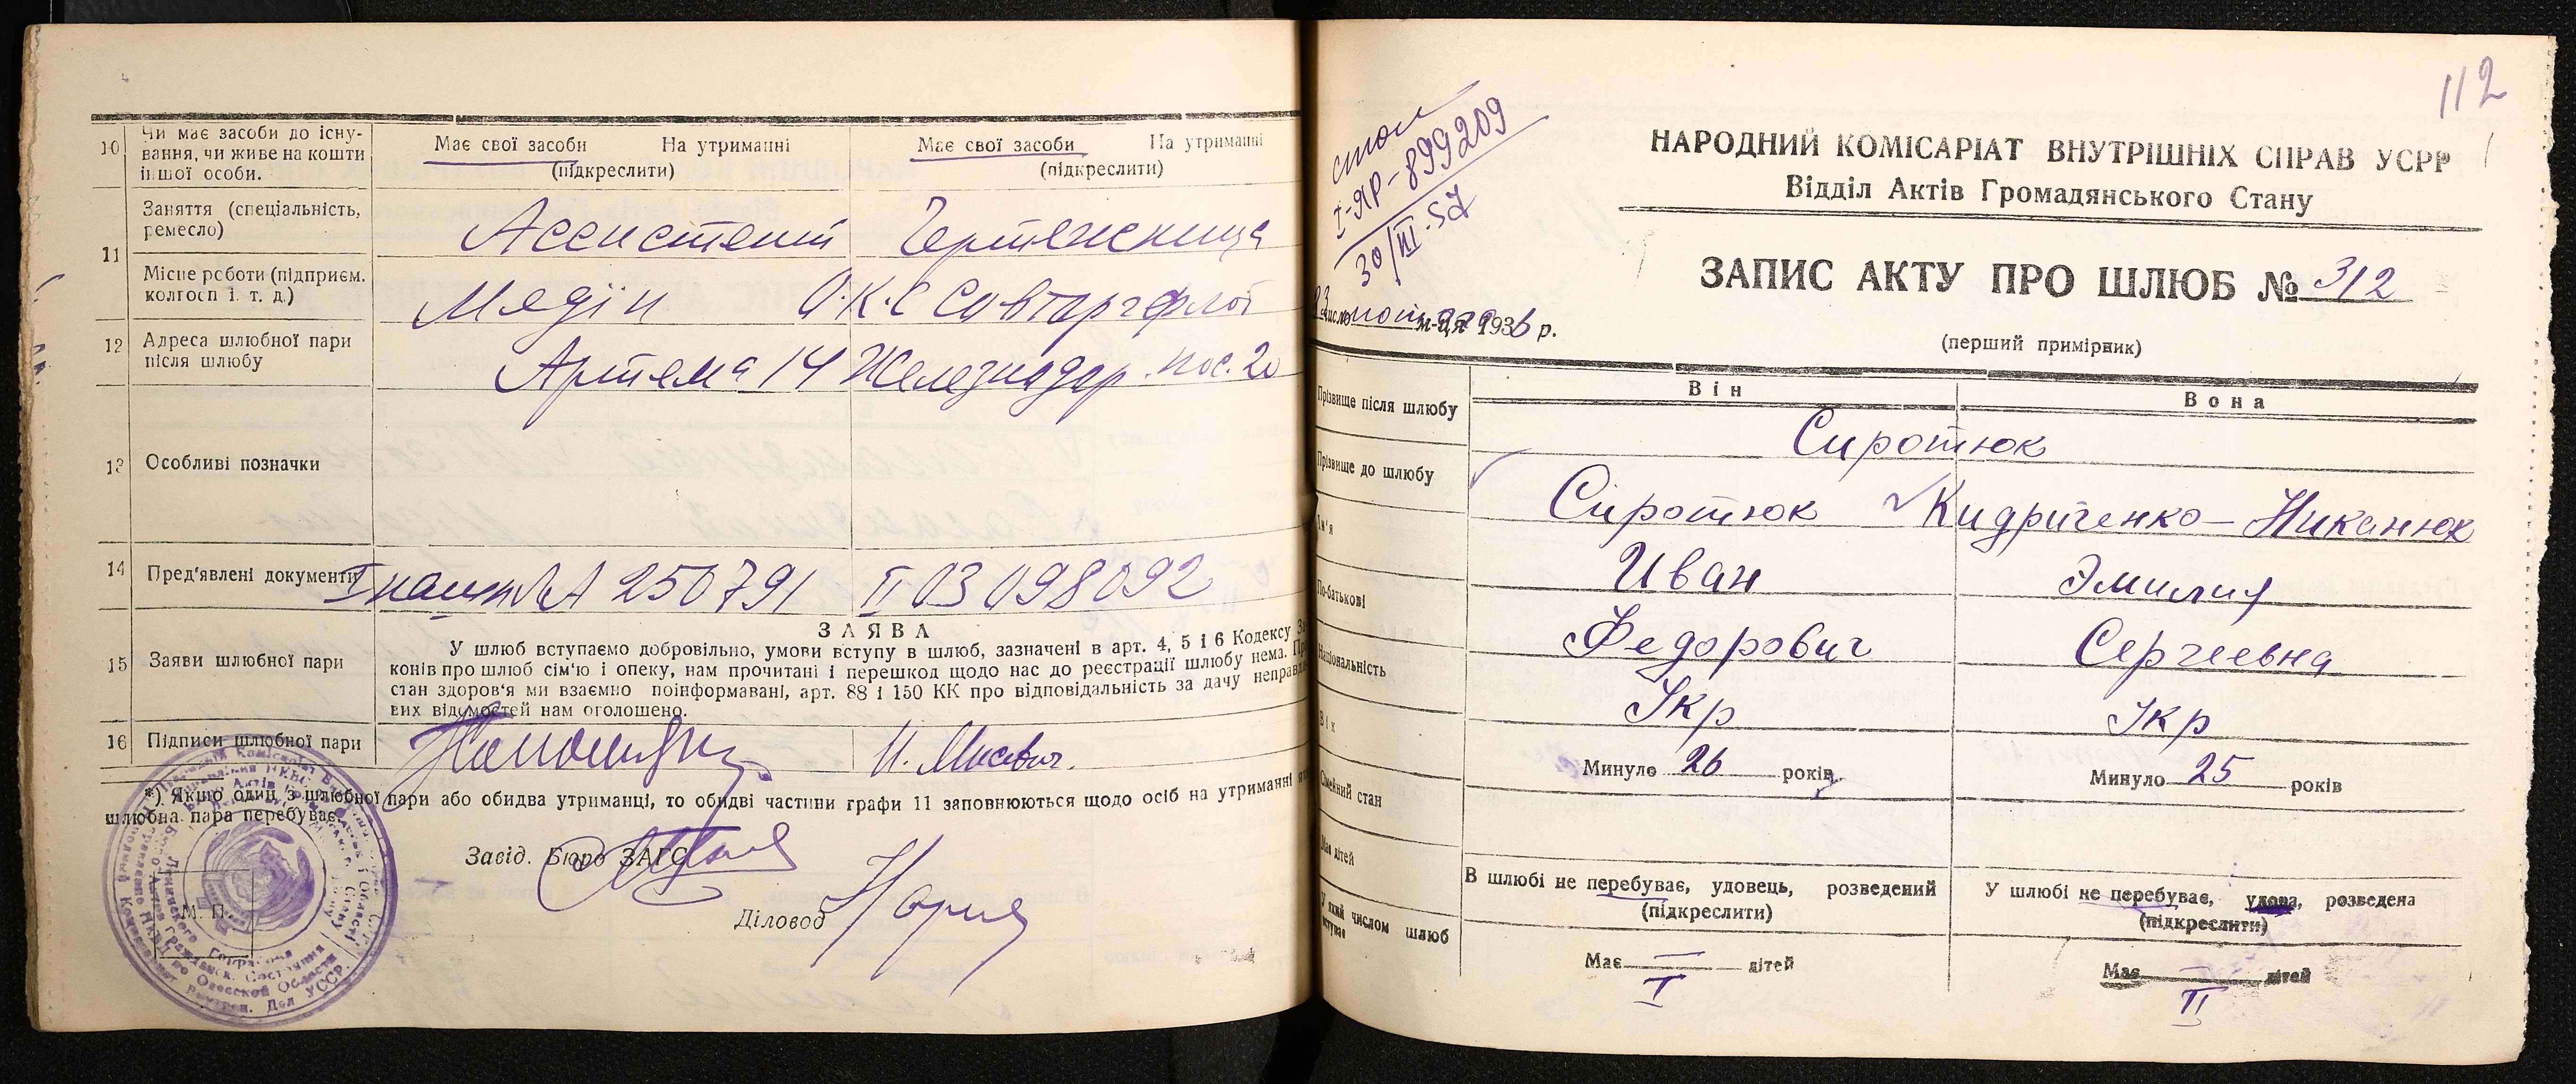 10
Чи має засоби до існу-
вання, чи живе на кошти
іншої особи.
Має свої засоби На утриманні
(підкреслити)
Має свої засоби На утриманні
(підкреслити)
11
Заняття (спеціальність,
ремесло)
Ассистент
Чертежница
Місце роботи (підприєм.
колгосп і. т. д.)
Медін
О.К.С Совторгфлот
12
Адреса шлюбної пари
після шлюбу
Артема 14
Железнодор. пос. 20
13
Особливі позначки
14
Пред'явлені документи
I пашп АА 250791
II 03 098092
15
Заяви шлюбної пари
ЗАЯВА
У шлюб вступаємо добровільно, умови вступу в шлюб, зазначені в арт. 4, 5 і 6 Кодексу
конів про шлюб сім'ю і опеку, нам прочитані і перешкод щодо нас до реєстрації шлюбу нема.
стан здоров'я ми взаємно поінформавані, арт. 88 і 150 КК про відповідальність за дачу неправд
вих відомостей нам оголошено.
16
Підписи шлюбної пари
*) Якщо один з шлюбної пари або обидва утриманці, то обидві частини графи 11 заповнюються щодо осіб на утриманні
шлюбна пара перебуває.
Завід. Бюро ЗАГС
Діловод
М. П.
112
стол
I-ЯР-899209
30/III-57
НАРОДНИЙ КОМІСАРІАТ ВНУТРІШНІХ СПРАВ УСРР
Відділ Актів Громадянського Стану
ЗАПИС АКТУ ПРО ШЛЮБ № 312
число м-ця 1936 р.
(перший примірник)
Він
Вона
Прізвище після шлюбу
Сиротюк
Прізвище до шлюбу
Сиротюк
Кидриченко-Никанюк
Ім'я
Иван
Эмилия
По-батькові
Федорович
Сергеевна
Національність
Укр
Укр
Вік
Минуло 26 років
Минуло 25 років
Сімейний стан
В шлюбі не перебуває, удовець, розведений
(підкреслити)
У шлюбі не перебуває, удова, розведена
(підкреслити)
Має дітей
Має — дітей
Має — дітей
У який числом шлюб
вступає
I
II